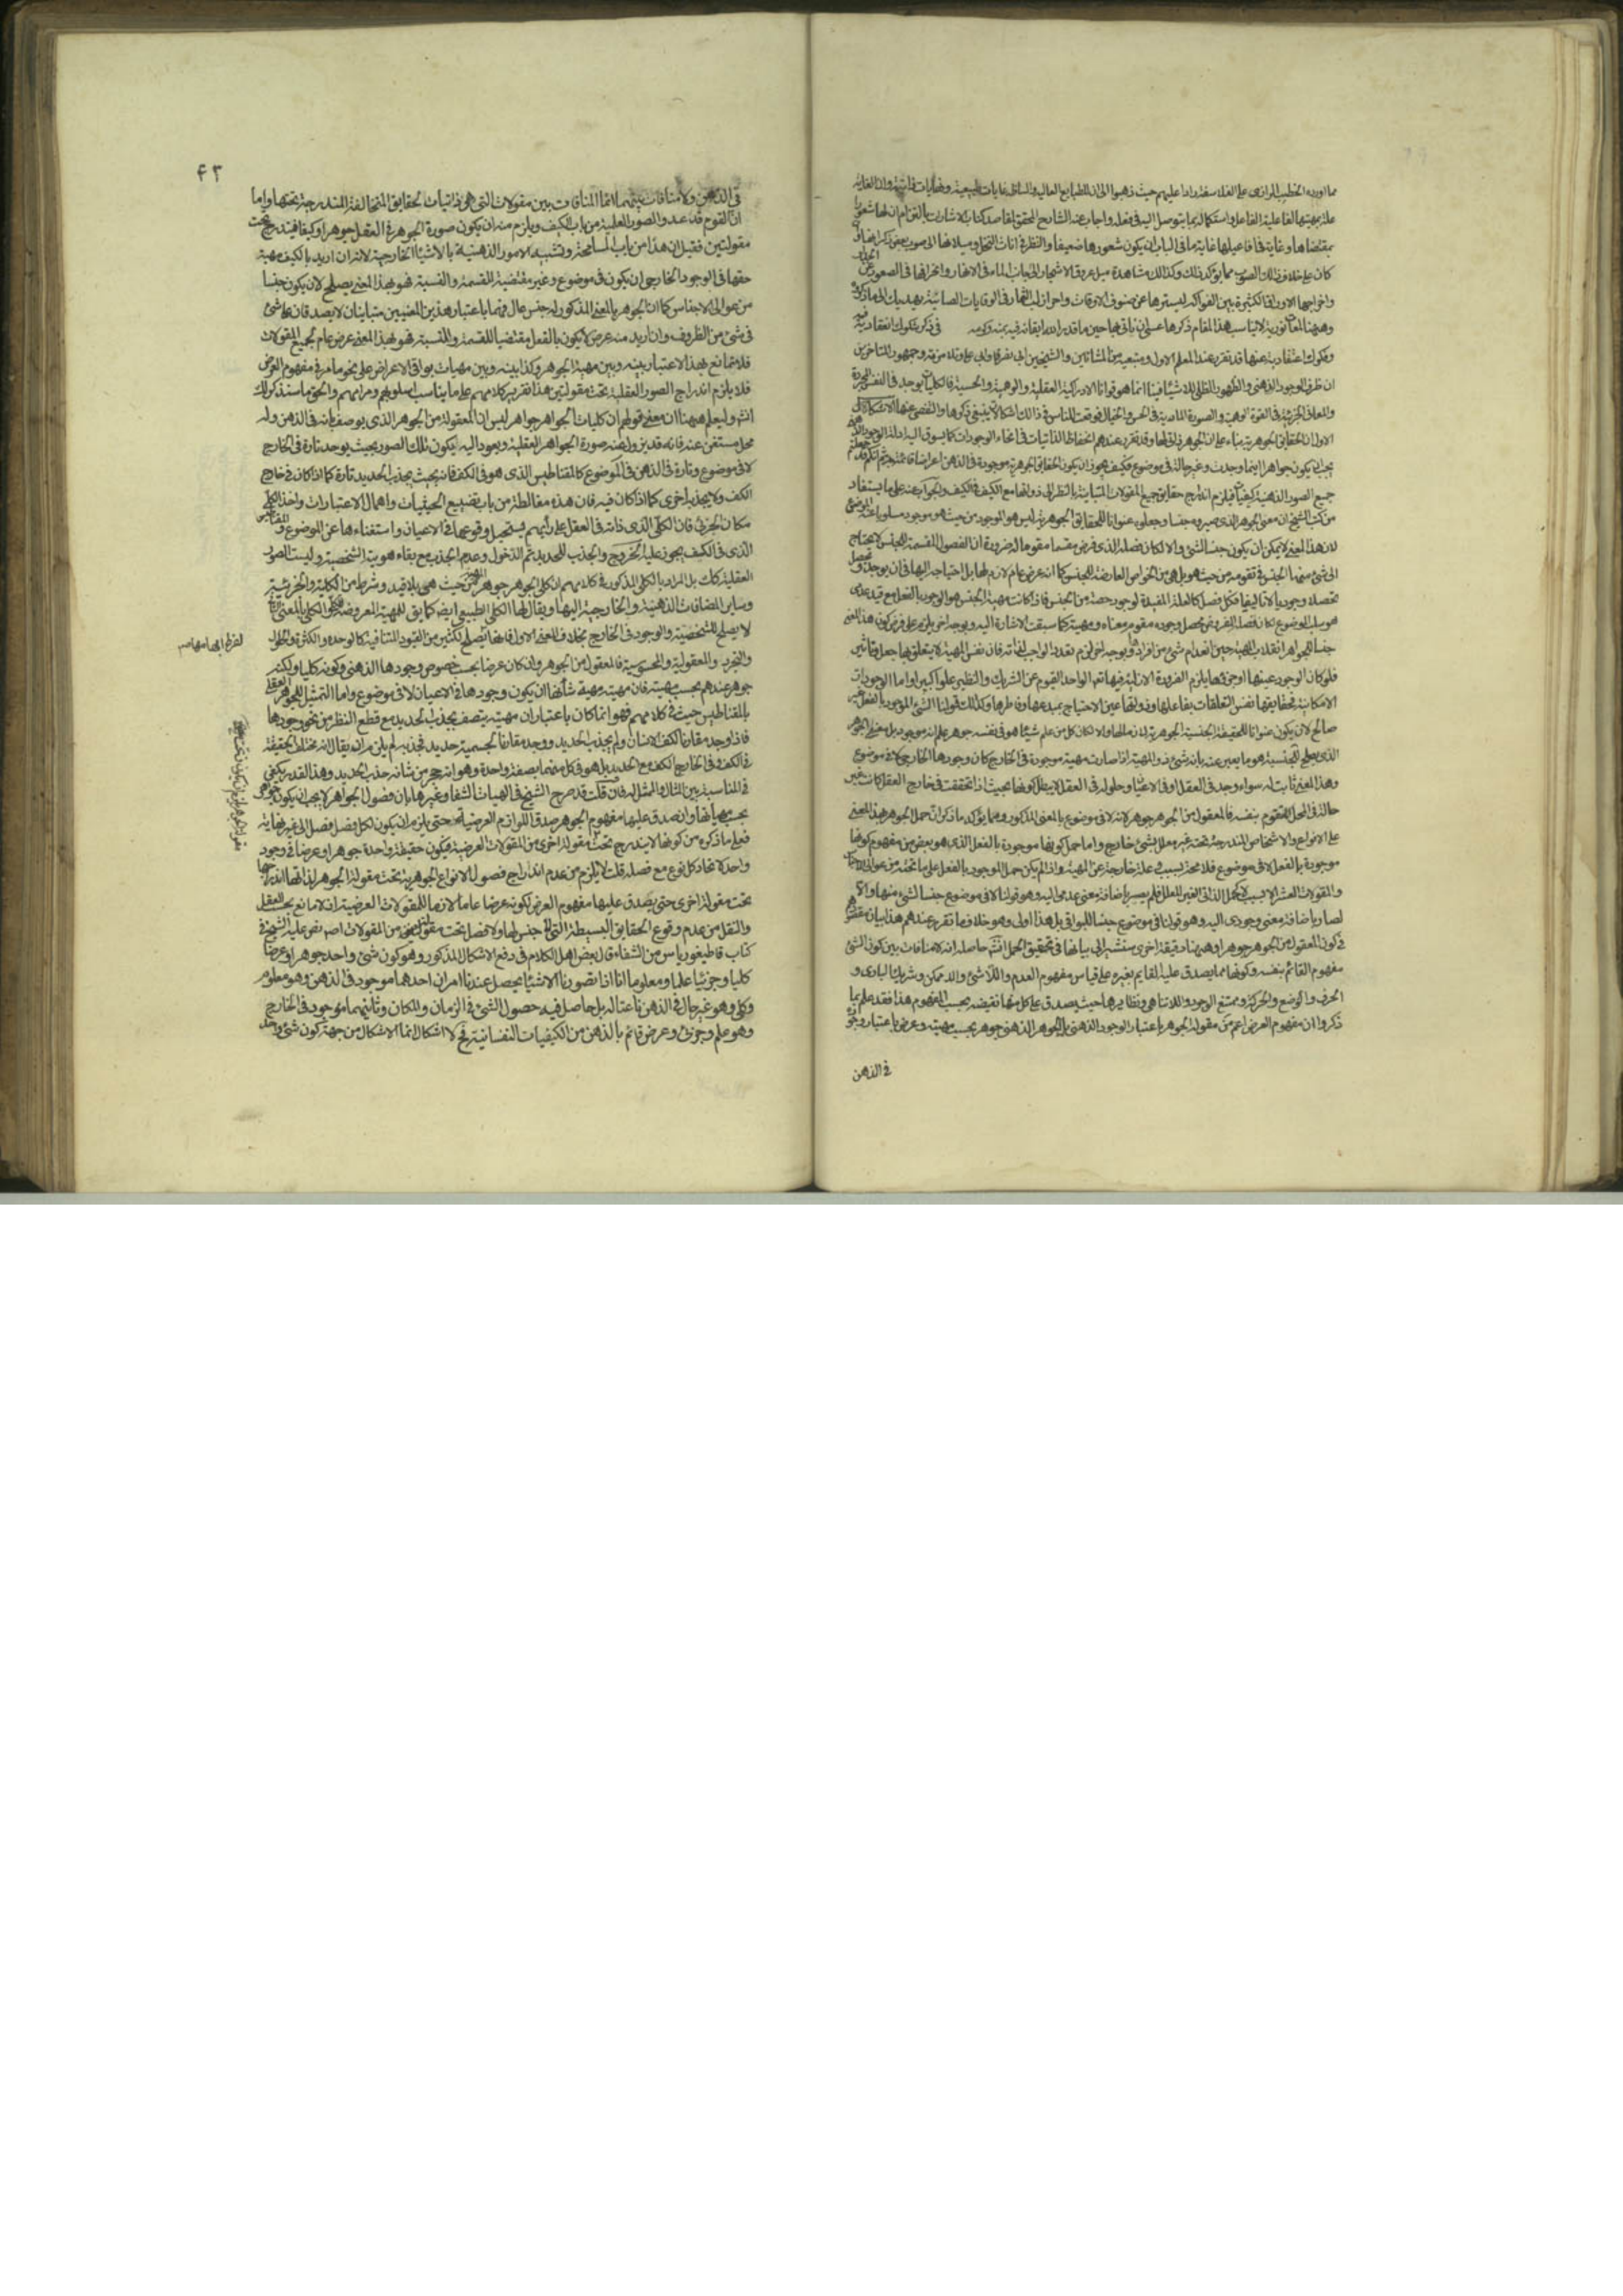 مما اورده الخطيب الرازى على الفلاسفة رادا عليهم حيث ذهبوا الى ان للطبايع العالية والسافل غايات طبيعية ونهايات ذاتية وان الغاية
علة بمهيتها لفاعلية الفاعل واستكماله بما يتوصل اليه فى فعله واجاب عنه الشارح المحقق لمقاصد كتاب الاشارات بالتزام ان لها شعورا
بمقتضاها وغاية فى افاعيلها غاية ما فى الباب ان يكون شعورها ضعيفا والنظر فى اناث النخل وميلانها الى صوب بعض ذكرانها و
كان على خلاف ذلك الصوب مما يؤكد ذلك وكذلك مشاهدة ميل عروق الاشجار الى جانب الماء فى الانهار وانحرافها فى الصعود عن
واخراجها الاوراق الكثيرة بين الفواكه ليسترها عن صنوف الافات واحراز لب الثمار فى الوقايات الصائنة يهديك الى ما ذكر
وههنا لمعات نورية لا يناسب هذا المقام ذكرها عسى ان ناتى بها حين ما قدر الله ايقانه فيه بمنه وكرمه فى ذكر شكوك انعقادية
وفكوك اعتقادية عنها قد تقرر عند المعلم الاول ومتبعيه من المشائين والشيخين ابى نصر وابى على وتلامذته وجمهور المتاخرين
ان ظرف الوجود الذهنى والظهور الظلى للاشيا فينا انما هو قوانا الادراكية العقلية والوهمية والحسية فالكليات توجد فى النفس المجردة
والمعانى الجزئية فى القوة الوهمية والصورة المادية فى الحس والخيال فوقعت للناس فى ذلك اشكالات ينبغى ذكرها والتفصى عنها الاشكال
الاول ان الحقايق الجوهرية بناء على ان الجوهر ذاتى لها وقد تقرر عندهم انحفاظ الذاتيات فى انحاء الوجودات كما يسوق اليه ادلة الوجود الذهنى
يجب ان يكون جواهر اينما وجدت وغير حالة فى موضوع فكيف يجوز ان يكون الحقايق الجوهرية موجودة فى الذهن اعراضا قائمة به ثم انكم قد جعلتم
جميع الصور الذهنية كيفيات فيلزم اندراج حقايق جميع المقولات المتباينة بالنظر الى ذواتها مع الكيف فى الكيف والجواب عنه على ما يستفاد
من كتب الشيخ ان معنى الجوهر الذى صيروه جنسا وجعلوه عنوانا للحقايق الجوهرية ليس هو الموجود من حيث هو موجود مسلوبا عنه الموضوع
لان هذا المعنى لا يمكن ان يكون جنسا لشئ والا لكان فصله الذى فرض مقسما مقوما له ضرورة ان الفصول المقسمة للجنس لا يحتاج
الى شئ منها الجنس فى تقومه من حيث هو بل هى من الخواص العارضة للجنس كما انه عرض عام لازم لها بل احتياجه اليها فى ان يوجد و يحصل
تحصلا وجوديا لا تاليفيا فكل فصل كالعلة المفيدة لوجود حصة من الجنس فاذا كانت مهية الجنس هو الوجود بالفعل مع قيد عدمى
هو سلب الموضوع لكان فصله المفروض محصل وجوده مقوم معناه ومهيته كما سبقت الاشارة اليه وبوجه اخر يلزم على فرض كون هذا المعنى
جنسا للجواهر انقلاب المهية حين انعدام شئ من افراده وبوجه اخر لزم تعدد الواجب لذاته فان نفس المهية لا يتعلق بها جعل وتاثير
فلو كان الوجود عينها او جزءها يلزم الضرورة الازلية فيها تعالى الواحد القيوم عن الشريك والنظير علوا كبيرا واما الوجودات
الامكانية فحقايقها نفس التعلقات بفاعلها وذواتها عين الاحتياج بمبدعها وفاطرها وكذلك قولنا الشئ الموجود بالفعل غير
صالح لان يكون عنوانا للحقيقة الجنسية الجوهرية لذلك ولا لكان كل من علم شيئا هو فى نفسه جوهر علم انه موجود بل معنى الجوهر
الذى يصلح للجنسية هو ما يعبر عنه بانه شئ ذو المهية اذا صارت مهيته موجودة فى الخارج كان وجودها الخارجى لا فى موضوع
وهذا المعنى ثابت له سواء وجد فى العقل او فى الاعيان وحلوله فى العقل لا يبطل كونها بحيث اذا تحققت فى خارج العقل كانت غير
حالة فى المحل المتقوم بنفسه فالمعقول من الجوهر جوهر لانه لا فى موضوع بالمعنى المذكور ومما يؤكد ما ذكر ان حمل الجوهر بهذا المعنى
على الانواع والاشخاص المندرجة تحته غير معلل بشئ خارج واما حمل كونها موجودة بالفعل الذى هو بعض من مفهوم كونها
موجودة بالفعل لا فى موضوع فلا محة لسبب وعلة خارجة عن المهية واذا لم يكن حمل الموجود بالفعل على ما تحته من عوالى الاجناس
والمقولات العشر الا بسبب لا كحمل الذاتى الغير المعلل فلم يصير باضافة معنى عدمى اليه وهو قولنا لا فى موضوع جنسا لشئ منها والا
لصار باضافة معنى وجودى اليه وهو قولنا فى موضوع جنسا للبواقى بل هذا اولى وهو خلاف ما تقرر عندهم هذا بيان
فى كون المعقول من الجوهر جوهرا وههنا دقيقة اخرى سنشير الى بيانها فى تحقيق الحمل انشاء حاصله انه لا منافات بين كون الشئ
مفهوم القائم بنفسه وكونها مما يصدق عليه القايم بغيره على قياس مفهوم العدم واللاشئ واللاممكن وشريك البارى و
الحرف والوضع والحركة وممتنع الوجود واللاتناهى ونظايرها حيث يصدق على كل منها نقيضه بحسب المفهوم هذا فقد علم بما
ذكروا ان مفهوم العرض اعم من مقولة الجوهر باعتبار الوجود الذهنى فالجوهر الذهنى جوهر بحسب مهيته وعرض باعتبار وجوده
فى الذهن
٤٣
فى الذهن ولا منافات بينهما انما المنافات بين مقولات التى هى ذاتيات للحقايق المتخالفة المندرجة تحتها واما
ان القوم قد عدوا الصور العلمية من باب الكيف ويلزم منه ان يكون صورة الجوهر فى العقل جوهرا وكيفا فيندرج تحت
مقولتين فقيل ان هذا من باب المسامحة وتشبيه الامور الذهنية بالاشيا الخارجية لانه ان اريد بالكيف مهية
حقها فى الوجود الخارجى ان يكون فى موضوع وغير مقتضية للقسمة والنسبة فهو بهذا المعنى يصلح لان يكون جنسا
من عوالى الاجناس كما ان الجوهر بالمعنى المذكور له جنس عال فهما باعتبار هذين المعنيين متباينان لا يصدقان على شئ
فى شئ من الظروف وان اريد منه عرض لا يكون بالفعل مقتضيا للقسمة والنسبة فهو بهذا المعنى عرض عام لجميع المقولات
فلا تمانع بهذا الاعتبار بينه وبين مهية الجوهر وكذا بينه وبين مهيات بواقى الاعراض على نحو ما مر فى مفهوم العرض
فلا يلزم اندراج الصور العقلية تحت مقولتين هذا تقرير كلامهم على ما يناسب اسلوبهم ومرامهم والحق ما سنذكر لك
انشا وليعلم ههنا ان معنى قولهم ان كليات الجواهر جواهر ليس ان المعقولة من الجوهر الذى يوصف بانه فى الذهن وله
محل مستغن عنه فانه قد يزول عنه صورة الجواهر العقلية ويعود اليه ليكون تلك الصور بحيث يوجد تارة فى الخارج
لا فى موضوع وتارة فى الذهن فى الموضوع كالمقناطيس الذى هو فى الكف فانه بحيث يجذب الحديد تارة كما اذا كان فى خارج
الكف ولا يجذبه اخرى كما اذا كان فيه فان هذه مغالطة من باب تضييع الحيثيات واهمال الاعتبارات واخذ الكلى
مكان الجزئى فان الكلى الذى ذاته فى العقل على رايهم يستحيل وقوعها فى الاعيان واستغناءها عن الموضوع والمقناطيس
الذى فى الكف يجوز عليه الخروج والجذب للحديد ثم الدخول وعدم الجذب مع بقاء هويته الشخصية وليست الصور
العقلية كك بل المراد بالكلى المذكور فى كلامهم ان كلى الجوهر جوهر المهية من حيث هى بلا قيد وشرط من الكلية والجزئية
وساير المضافات الذهنية والخارجية اليها ويقال لها الكلى الطبيعى ايضا كما يق للمهية المعروضة الكلى بالمعنى
لا يصلح للشخصية والوجود فى الخارج بخلاف المعنى الاول فانها يصلح لكثير من القيود المتنافية كالوحدة والكثرة والحلول
والتجرد والمعقولية والمحسوسية فالمعقول من الجوهر وان كان عرضا بحسب خصوص وجودها الذهنى وكونه كليا ولكنه
جوهر عندهم بحسب مهيته فان مهيته مهية شأنها ان يكون وجودها فى الاعيان لا فى موضوع واما التمثيل للجوهر العقلى
بالمقناطيس حيث فى كلامهم فهو انما كان باعتبار ان مهيته يتصف بجذب الحديد مع قطع النظر من نحو وجودها
فاذا وجد مقارنا لكف الانسان ولم يجذب الحديد ووجد مقارنا لجسمية حديد فجذبه لم يلزم ان يقال انه مختلف الحقيقة
فى الكف وفى الخارج الكف مع الحديد بل هو فى كل منهما بصفة واحدة وهو انه حجر من شانه جذب الحديد وهذا القدر يكفى
فى المناسبة بين المثال والممثل له فان قلت قد صرح الشيخ فى الهيات الشفا وغيرها بان فصول الجواهر لا يجب ان يكون جواهر
بحسب مهياتها وان صدق عليها مفهوم الجوهر صدق اللوازم العرضية لتحه حتى يلزم ان يكون لكل فصل فصل الى غير نهاية
فعلى ما ذكره من كونها لا يندرج تحت مقولة اخرى من المقولات العرضية فيكون حقيقة واحدة جوهرا وعرضا فى وجود
واحد لاتحاد كل نوع مع فصله قلت لا يلزم من عدم اندراج فصول الانواع الجوهرية تحت مقولة الجوهر لذاتها اندراجها
تحت مقولة اخرى حتى يصدق عليها مفهوم العرض لكونه عرضا عاما لازما للمقولات العرضية اذ لا مانع بحسب العقل
والنقل من عدم وقوع الحقايق البسيطة التى لا جنس لها ولا فصل تحت مقولة من المقولات اصلا نص عليه الشيخ فى
كتاب قاطيغورياس من الشفاء قال بعض اهل الكلام فى دفع الاشكال المذكور وهو كون شئ واحد جوهرا وعرضا
كليا وجزئيا علما ومعلوما انا اذا تصورنا الاشيا يحصل عندنا امران احدهما موجود فى الذهن وهو معلوم
وكلى وهو غير حال فى الذهن ناعتا له بل حاصل فيه حصول الشئ فى الزمان والمكان وثانيهما موجود فى الخارج
وهو علم وجزئى وعرض قائم بالذهن من الكيفيات النفسانية فح لا اشكال انما الاشكال من جهة كون شئ واحد